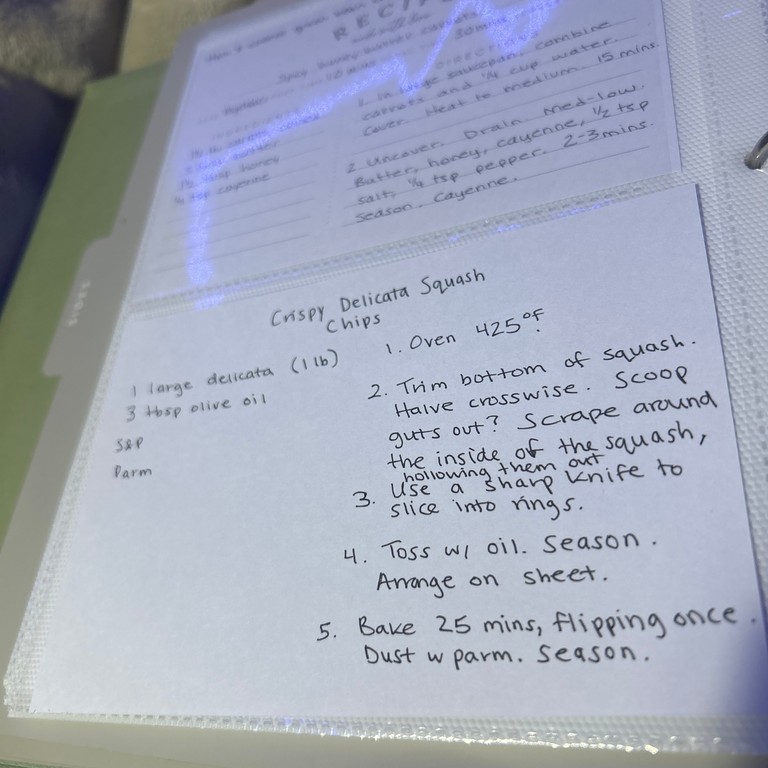 RECI
30 min
DIRECT
1. In large saucepan, combine
carrots and 1/4 cup water.
Cover. Heat to medium. 15 mins.
2 Uncover. Drain. Med-low.
Butter, honey, cayenne, 1/2 tsp
salt, 1/4 tsp pepper. 2-3mins.
season. Cayenne.
honey
1/4 tsp cayenne
Crispy Delicata Squash
Chips
1 large delicata (1 lb)
3 tbsp olive oil
S&P
Parm
1. Oven 425°F.
2. Trim bottom of squash.
Halve crosswise. Scoop
guts out? Scrape around
the inside of the squash,
hollowing them out
3. Use a sharp knife to
slice into rings.
4. Toss w/ oil. Season.
Arrange on sheet.
5. Bake 25 mins, flipping once.
Dust w parm. Season.